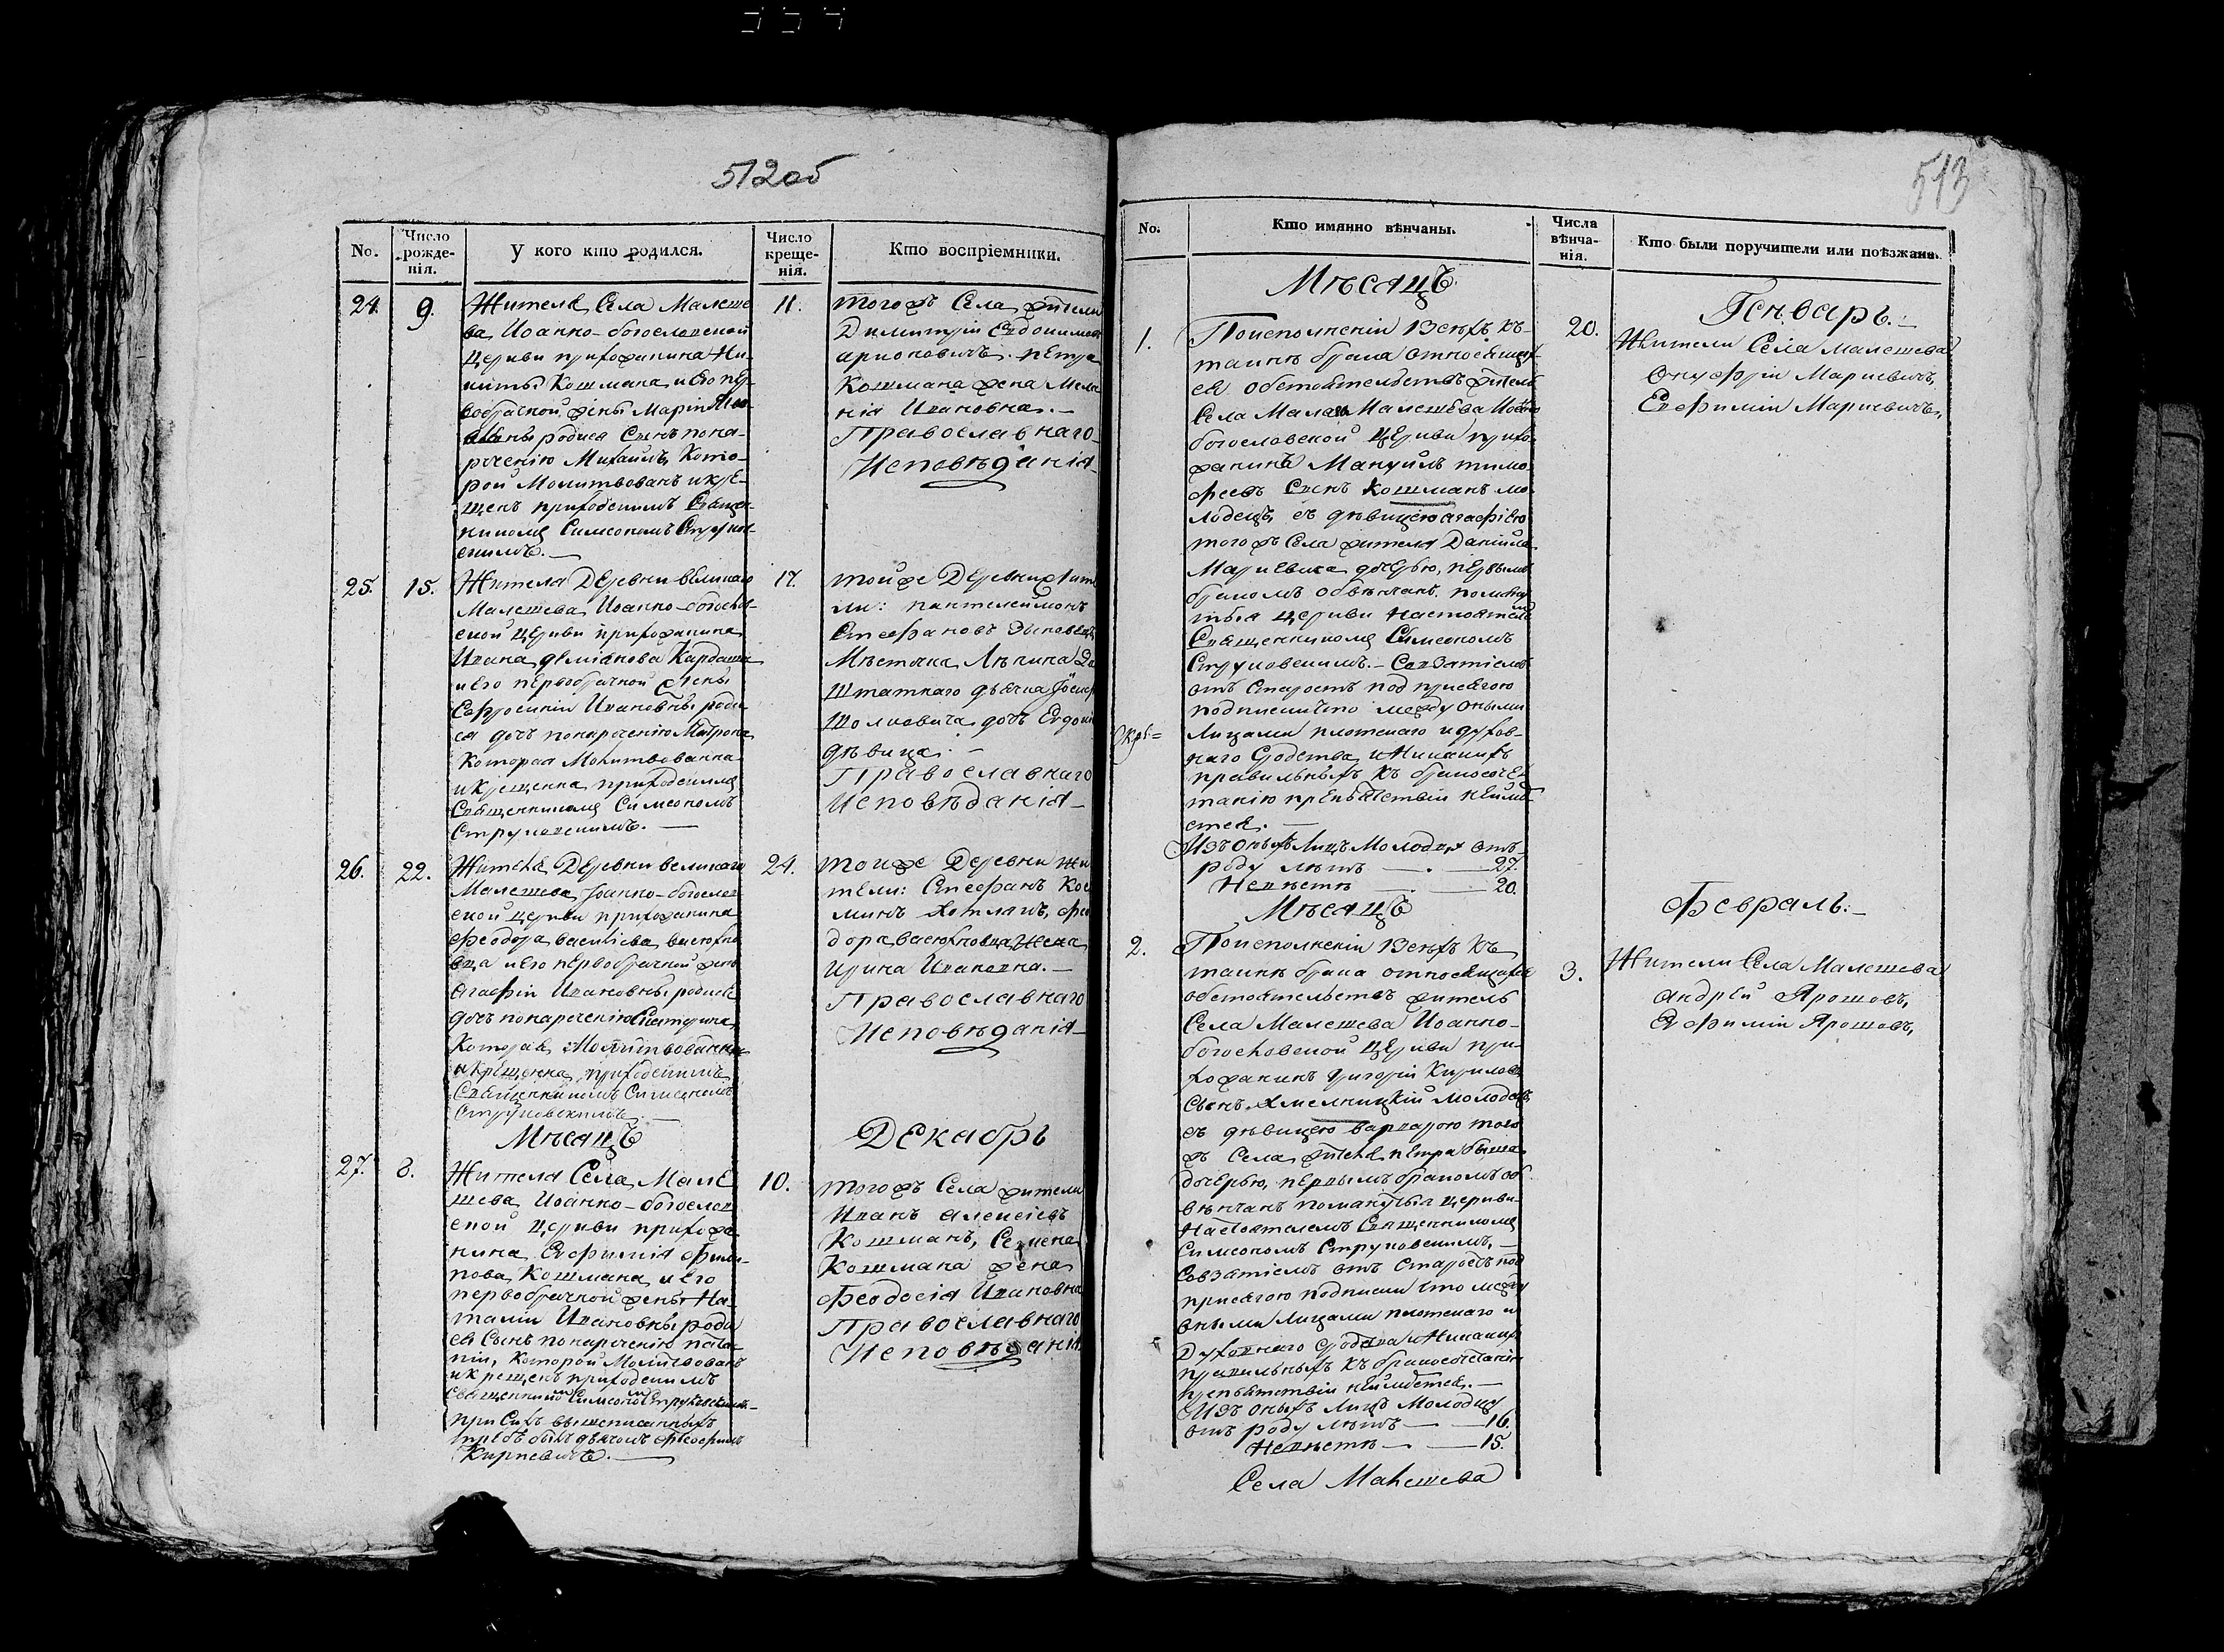 512об
No.
Число рожде-нія.
У кого кто родился.
Число креще-нія.
Кто воспріемники.
24. 9.
Жителя Села Малеше
ва Иоанно-богословской
Церкви прихожанина Ни-
киты Кошмана, и его пер-
вобрачной жены Маріи
родися Сынъ пона-
речению Михаилъ, Кото-
рой Молитвованъ и кре-
щенъ приходскимъ Священ-
никомъ Симеономъ Струков-
скимъ.
11.
тогожъ Села жители
Димитрій
Петра
Кошмана жена Мела
нія Ивановна.
Православнаго
Исповѣданія
25. 15.
Жителя Деревни великаго
Малешева Иоанно-богослов-
ской церкви прихожанина
Ивана Деміянова Кардаша
и его первобрачной жены
Ефросиніи Ивановны роди
ся дочь понаречению Матрона
Которая Молитвованна
и крещенна приходскимъ
Священникомъ Симеономъ
Струковскимъ.
17.
тойже Деревни жите
ли: Пантелеимонъ
Стефановъ
Мѣстечка
Штатнаго дьячка
дочь Евдокія
дѣвица.
Православнаго
Исповѣданія
26. 22.
Жителя Деревни великаго
Малешева Іоанно-богослов
ской церкви прихожанина
Феодора
и его первобрачной жены
Агафіи Ивановны родися
дочь понаречению Екатерина
Которая Молитвованна
и Крещенна приходскимъ
Священникомъ Симеономъ
Струковскимъ.
24.
тойже Деревни жи
тели: Стефанъ
Фео
дора жена
Ирина Ивановна.
Православнаго
Исповѣданія
Мѣсяцъ
Декабрь
27. 8.
Жителя Села Мале
шева Иоанно-богослов
ской церкви прихожа
нина Евфимія Фили-
пова Кошмана и его
первобрачной жены На-
таліи Ивановны роди
ся Сынъ понаречению
Которой Молитвованъ
и крещенъ приходскимъ
Священникомъ Симеономъ Струковскимъ
при Сихъ вышеписанныхъ
былъ дьячкомъ Феофилъ
Кирневичъ.
10.
тогожъ Села жители
Иванъ Алексіевъ
Кошманъ, Семена
Кошмана жена
Феодосія Ивановна
Православнаго
Исповѣданія
513
No.
Кто имянно вѣнчаны.
Числа вѣнча-нія.
Кто были поручители или поѣзжане.
Мѣсяцъ
Генварь.
1.
По исполненіи Всехъ къ
таинѣ брака относящих-
ся обстоятельствъ житель
Села Малешева Иоанно
богословской церкви прихо-
жанинъ Мануилъ тимо-
феевъ Сынъ Кошманъ мо-
лодецъ съ дѣвицею агафіею
тогожъ Села жителя Даніила
Мариевича дочерью, первымъ
бракомъ обвѣнчанъ
церкви Настоятелемъ
Священникомъ Симеономъ
Струковскимъ. Совзятіемъ
отъ Старостъ под присягою
подписки что между оными
Лицами плотскаго и духов-
наго Сродства и Никакихъ
правильныхъ къ бракосоче-
танію препятствій неимѣ-
ется.
Изъ оныхъ Лицъ Молодцу отъ
роду лѣтъ 27.
Невѣсте 20.
20.
Жители Села Малешева
Онуфрій Мариевичъ,
Евфимій Мариевичъ,
Мѣсяцъ
Февраль.
2.
По исполненіи Всехъ къ
таинѣ брака относящихся
обстоятельствъ житель
Села Малешева Иоанно-
богословской церкви при-
хожанинъ Григорій Кириловъ
Сынъ Хмелницкій молодецъ
съ дѣвицею Варварою того
жъ Села жителя Петра
дочерью, первымъ бракомъ об
вѣнчанъ церкви
Настоятелемъ Священникомъ
Симеономъ Струковскимъ,
Совзятіемъ отъ Старостъ под
присягою подписки что между
оными Лицами плотскаго и
Духовнаго Сродства и Никакихъ
правильныхъ къ бракосочетанію
препятствій неимѣется.
Изъ оныхъ Лицъ Молодцу
отъ роду лѣтъ 16.
Невѣсте 15.
3.
Жители Села Малешева
Андрей Ярошовъ,
Евфимій Ярошовъ,
Села Малешева